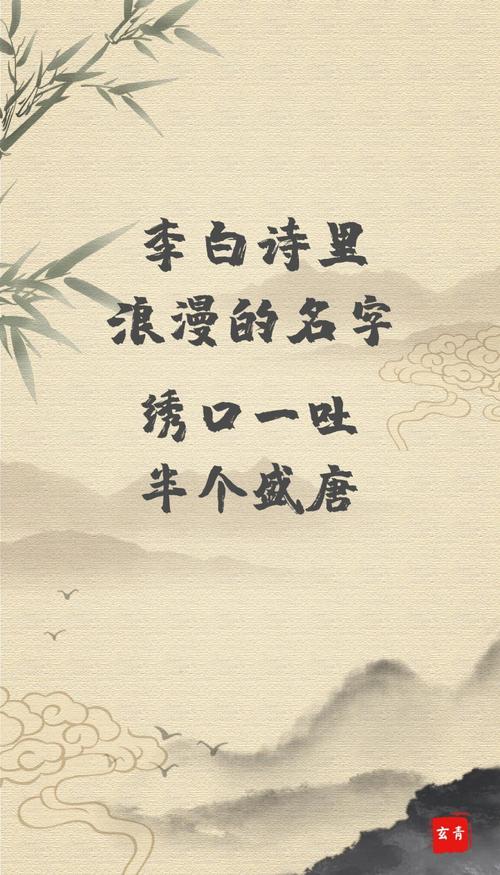 李白诗里
浪漫的名字
绣口一吐
半个盛唐
玄青